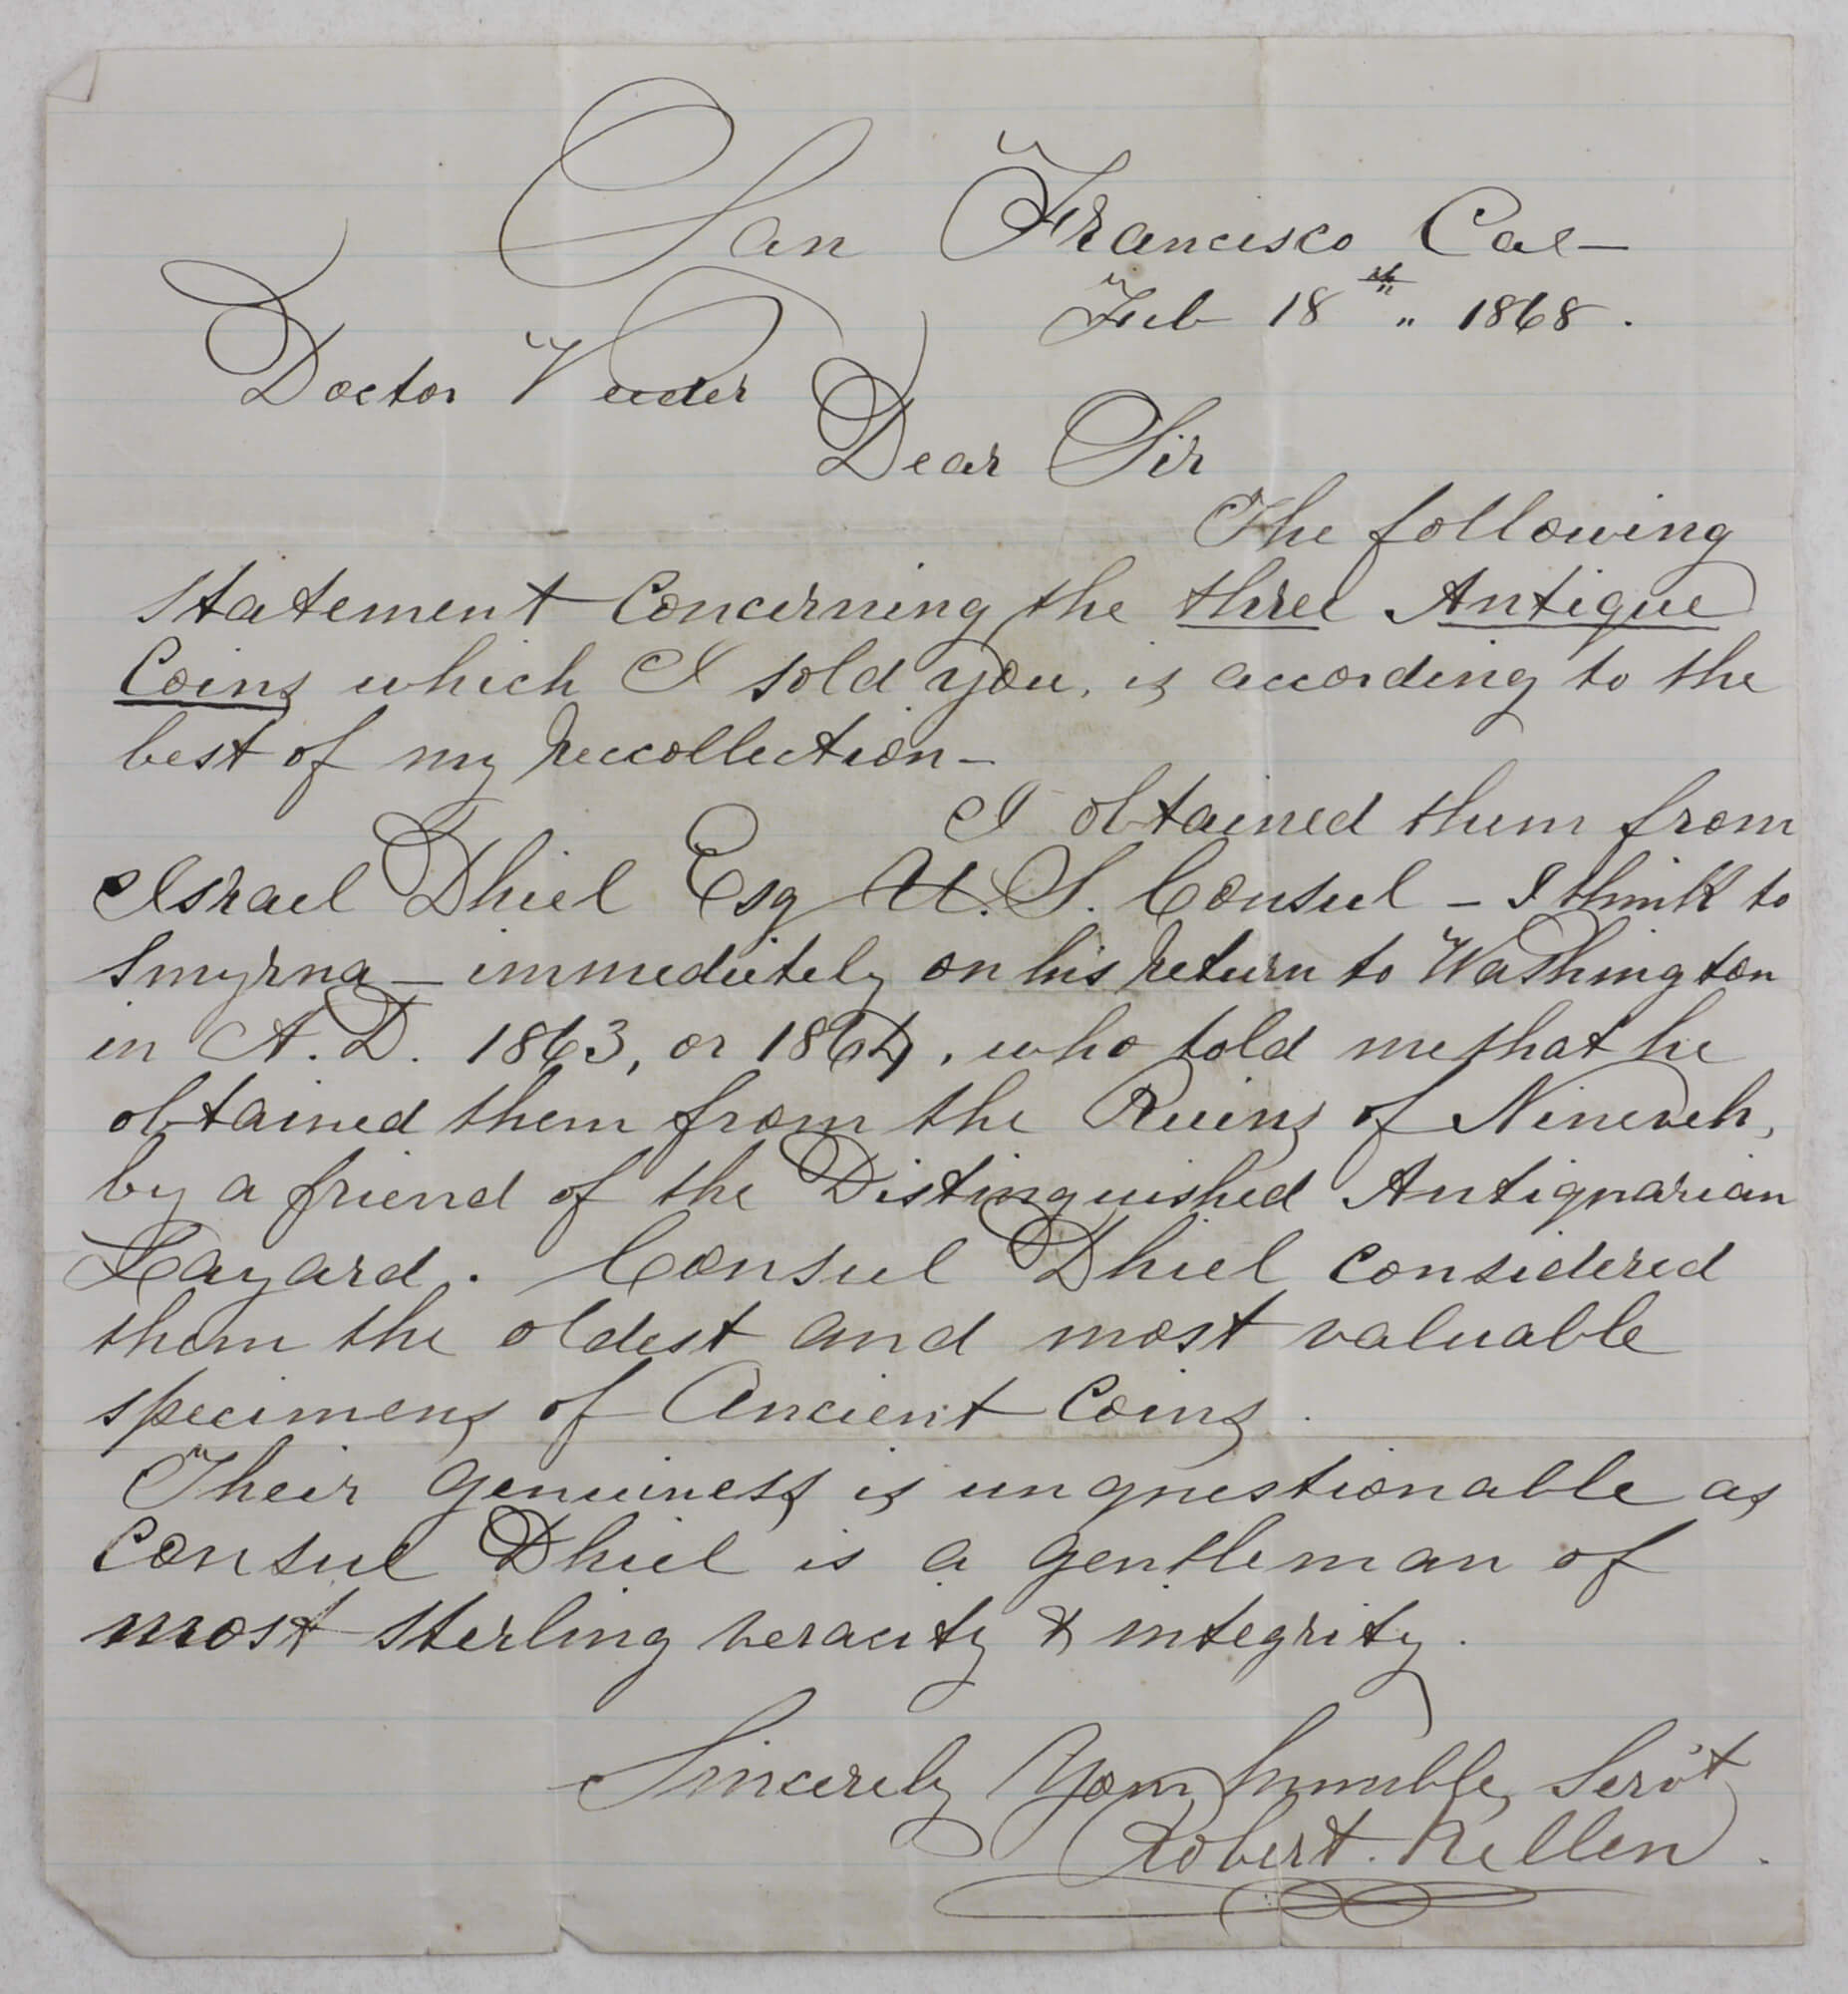 San Francisco Cal—
Feb 18th „ 1868.
Doctor Veeder
Dear Sir
The following
statement concerning the three Antique
Coins which I sold you, is according to the
best of my reccollection—
I obtained them from
Israel Dhiel Esq U.S. Consul — I think to
Smyrna — immediately on his return to Washington
in A.D. 1863, or 1864, who told me that he
obtained them from the Ruins of Nineveh,
by a friend of the Distinguished Antiquarian
Layard. Consul Dhiel considered
them the oldest and most valuable
specimens of Ancient Coins.
Their genuiness is unquestionable as
Consul Dhiel is a gentleman of
most sterling veracity & integrity.
Sincerely Your humble Serv't
Robert. Kellen.